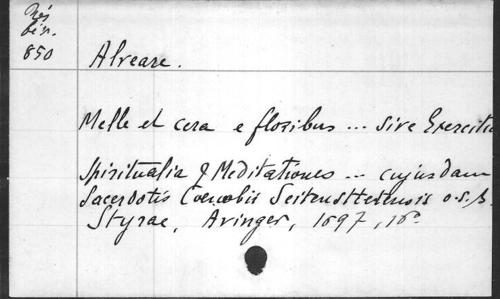 Rés
bén.
850
Alveare.
Melle et cera e floribus ... sive Exercitia
Spiritualia & Meditationes ... cujusdam
Sacerdotis Coenobii Seitenstettensis o.s.b.
Styrae, Avinger, 1697, 16°